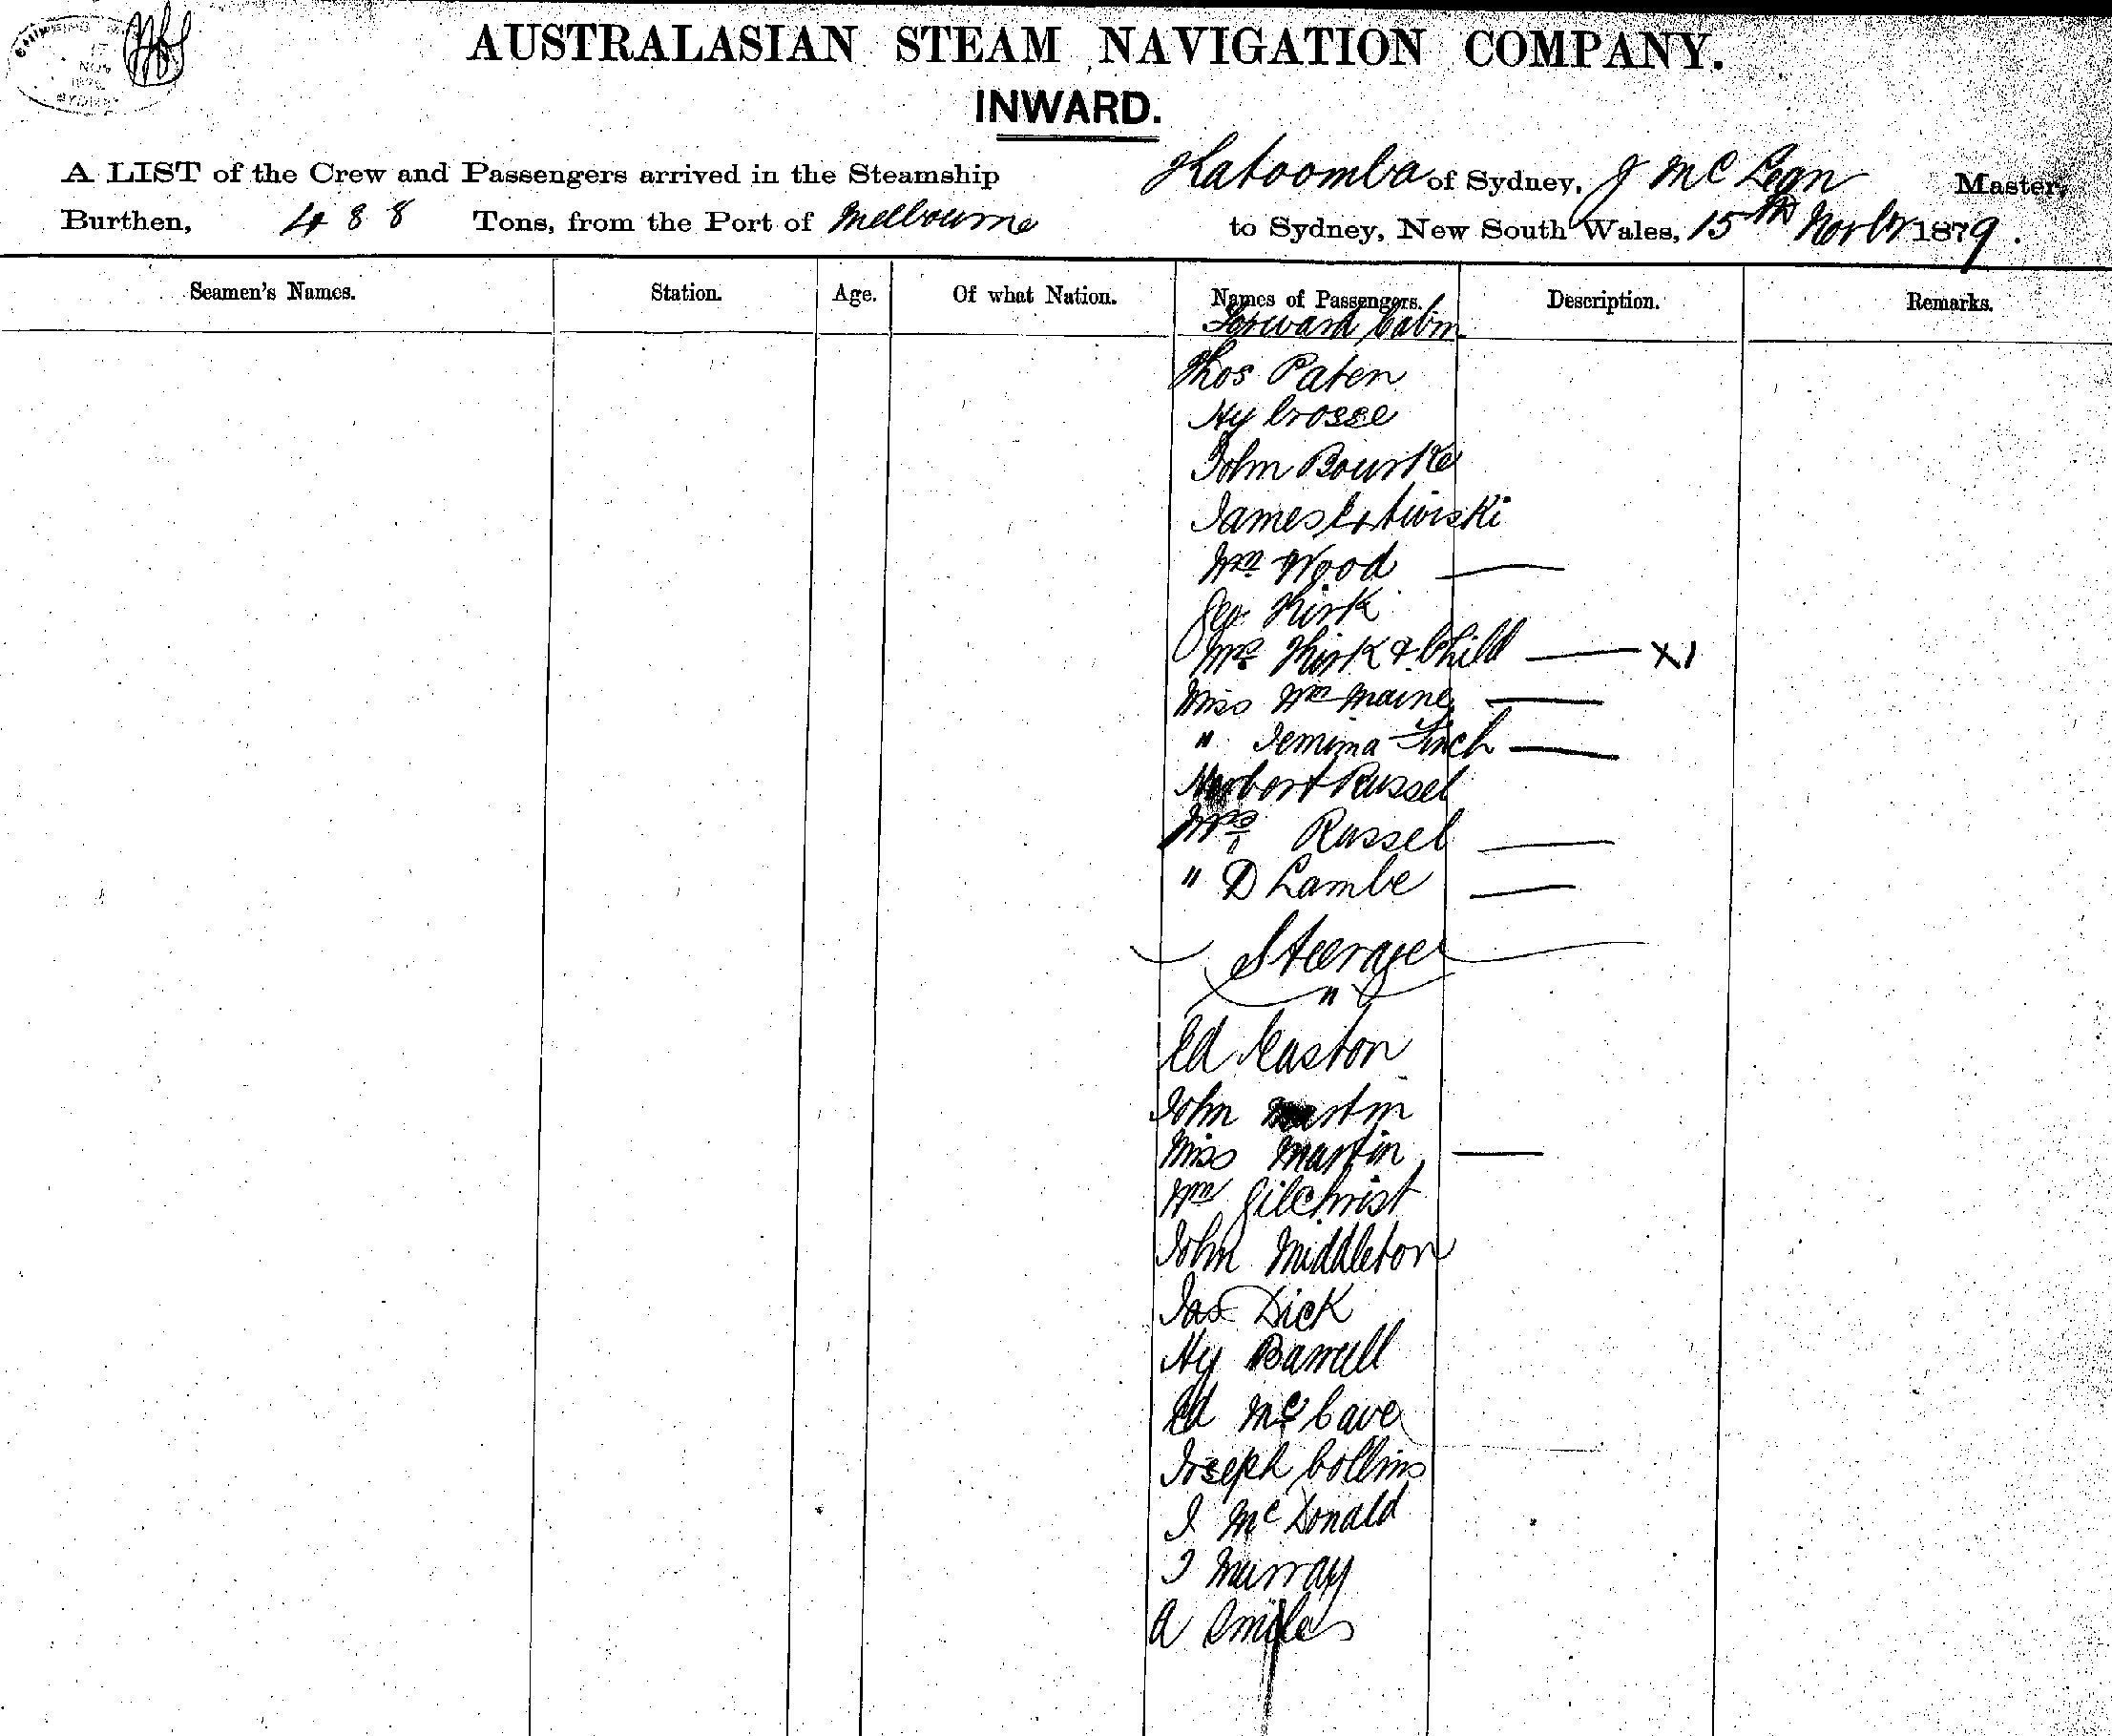 AUSTRALASIAN STEAM NAVIGATION COMPANY.
INWARD.
A LIST of the Crew and Passengers arrived in the Steamship Katoomba of Sydney, J McLean Master,
Burthen, 488 Tons, from the Port of Melbourne to Sydney, New South Wales, 15th Novbr 1879.
Seamen's Names. Station. Age. Of what Nation. Names of Passengers. Description. Remarks.
Forward Cabin
Thos Paten
Hy Crosse
John Bourke
James
Wm Wood
Geo Kirk
Mrs Kirk & Child X1
Miss Wm Maine
" Jemima Finch
Herbert Russel
Mrs Russel
" D Lambe
Steerage
"
Ed Easton
John Martin
Miss Martin
Wm Gilchrist
John Middleton
Jas Dick
Hy
Ed McCave
Joseph Collins
J McDonald
J Murray
A Smiles